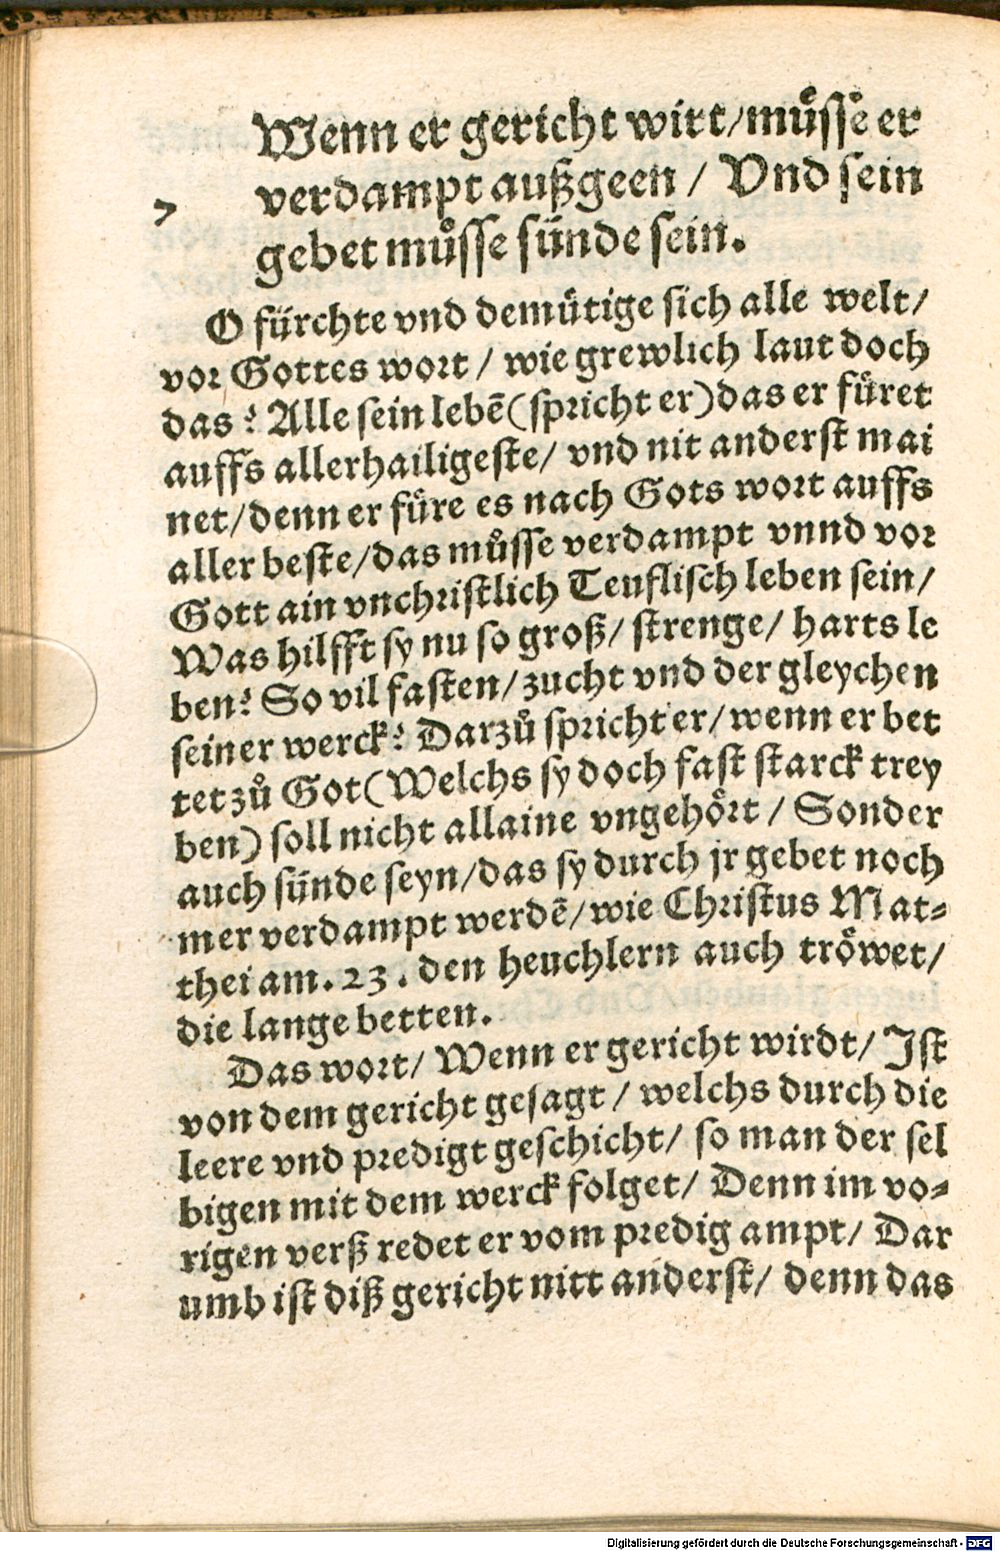 Wenn er gericht wirt/müsse er
7 verdampt außgeen / Vnd sein
gebet můsse sünde sein.
O fürchte vnd demütige sich alle welt/
vor Gottes wort / wie grewlich laut doch
das? Alle sein lebē(spricht er)das er füret
auffs allerhailigeste/ vnd nit anderst mai
net/denn er füre es nach Gots wort auffs
aller beste/das můsse verdampt vnnd vor
Gott ain vnchristlich Teuflisch leben sein/
Was hilfft sy nu so groß/ strenge/ harts le
ben? So vil fasten/zucht vnd der gleychen
seiner werck? Darzů spricht er/wenn er bet
tet zů Got(Welchs sy doch fast starck trey
ben) soll nicht allaine vngehört / Sonder
auch sünde seyn/das sy durch jr gebet noch
mer verdampt werdē/wie Christus Mat⸗
thei am. 23. den heuchlern auch tröwet/
die lange betten.
Das wort/ Wenn er gericht wirdt/ Ist
von dem gericht gesagt / welchs durch die
leere vnd predigt geschicht/ so man der sel
bigen mit dem werck folget/ Denn im vo⸗
rigen verß redet er vom predig ampt/ Dar
umb ist diß gericht nitt anderst/ denn das
Digitalisierung gefördert durch die Deutsche Forschungsgemeinschaft - DFG